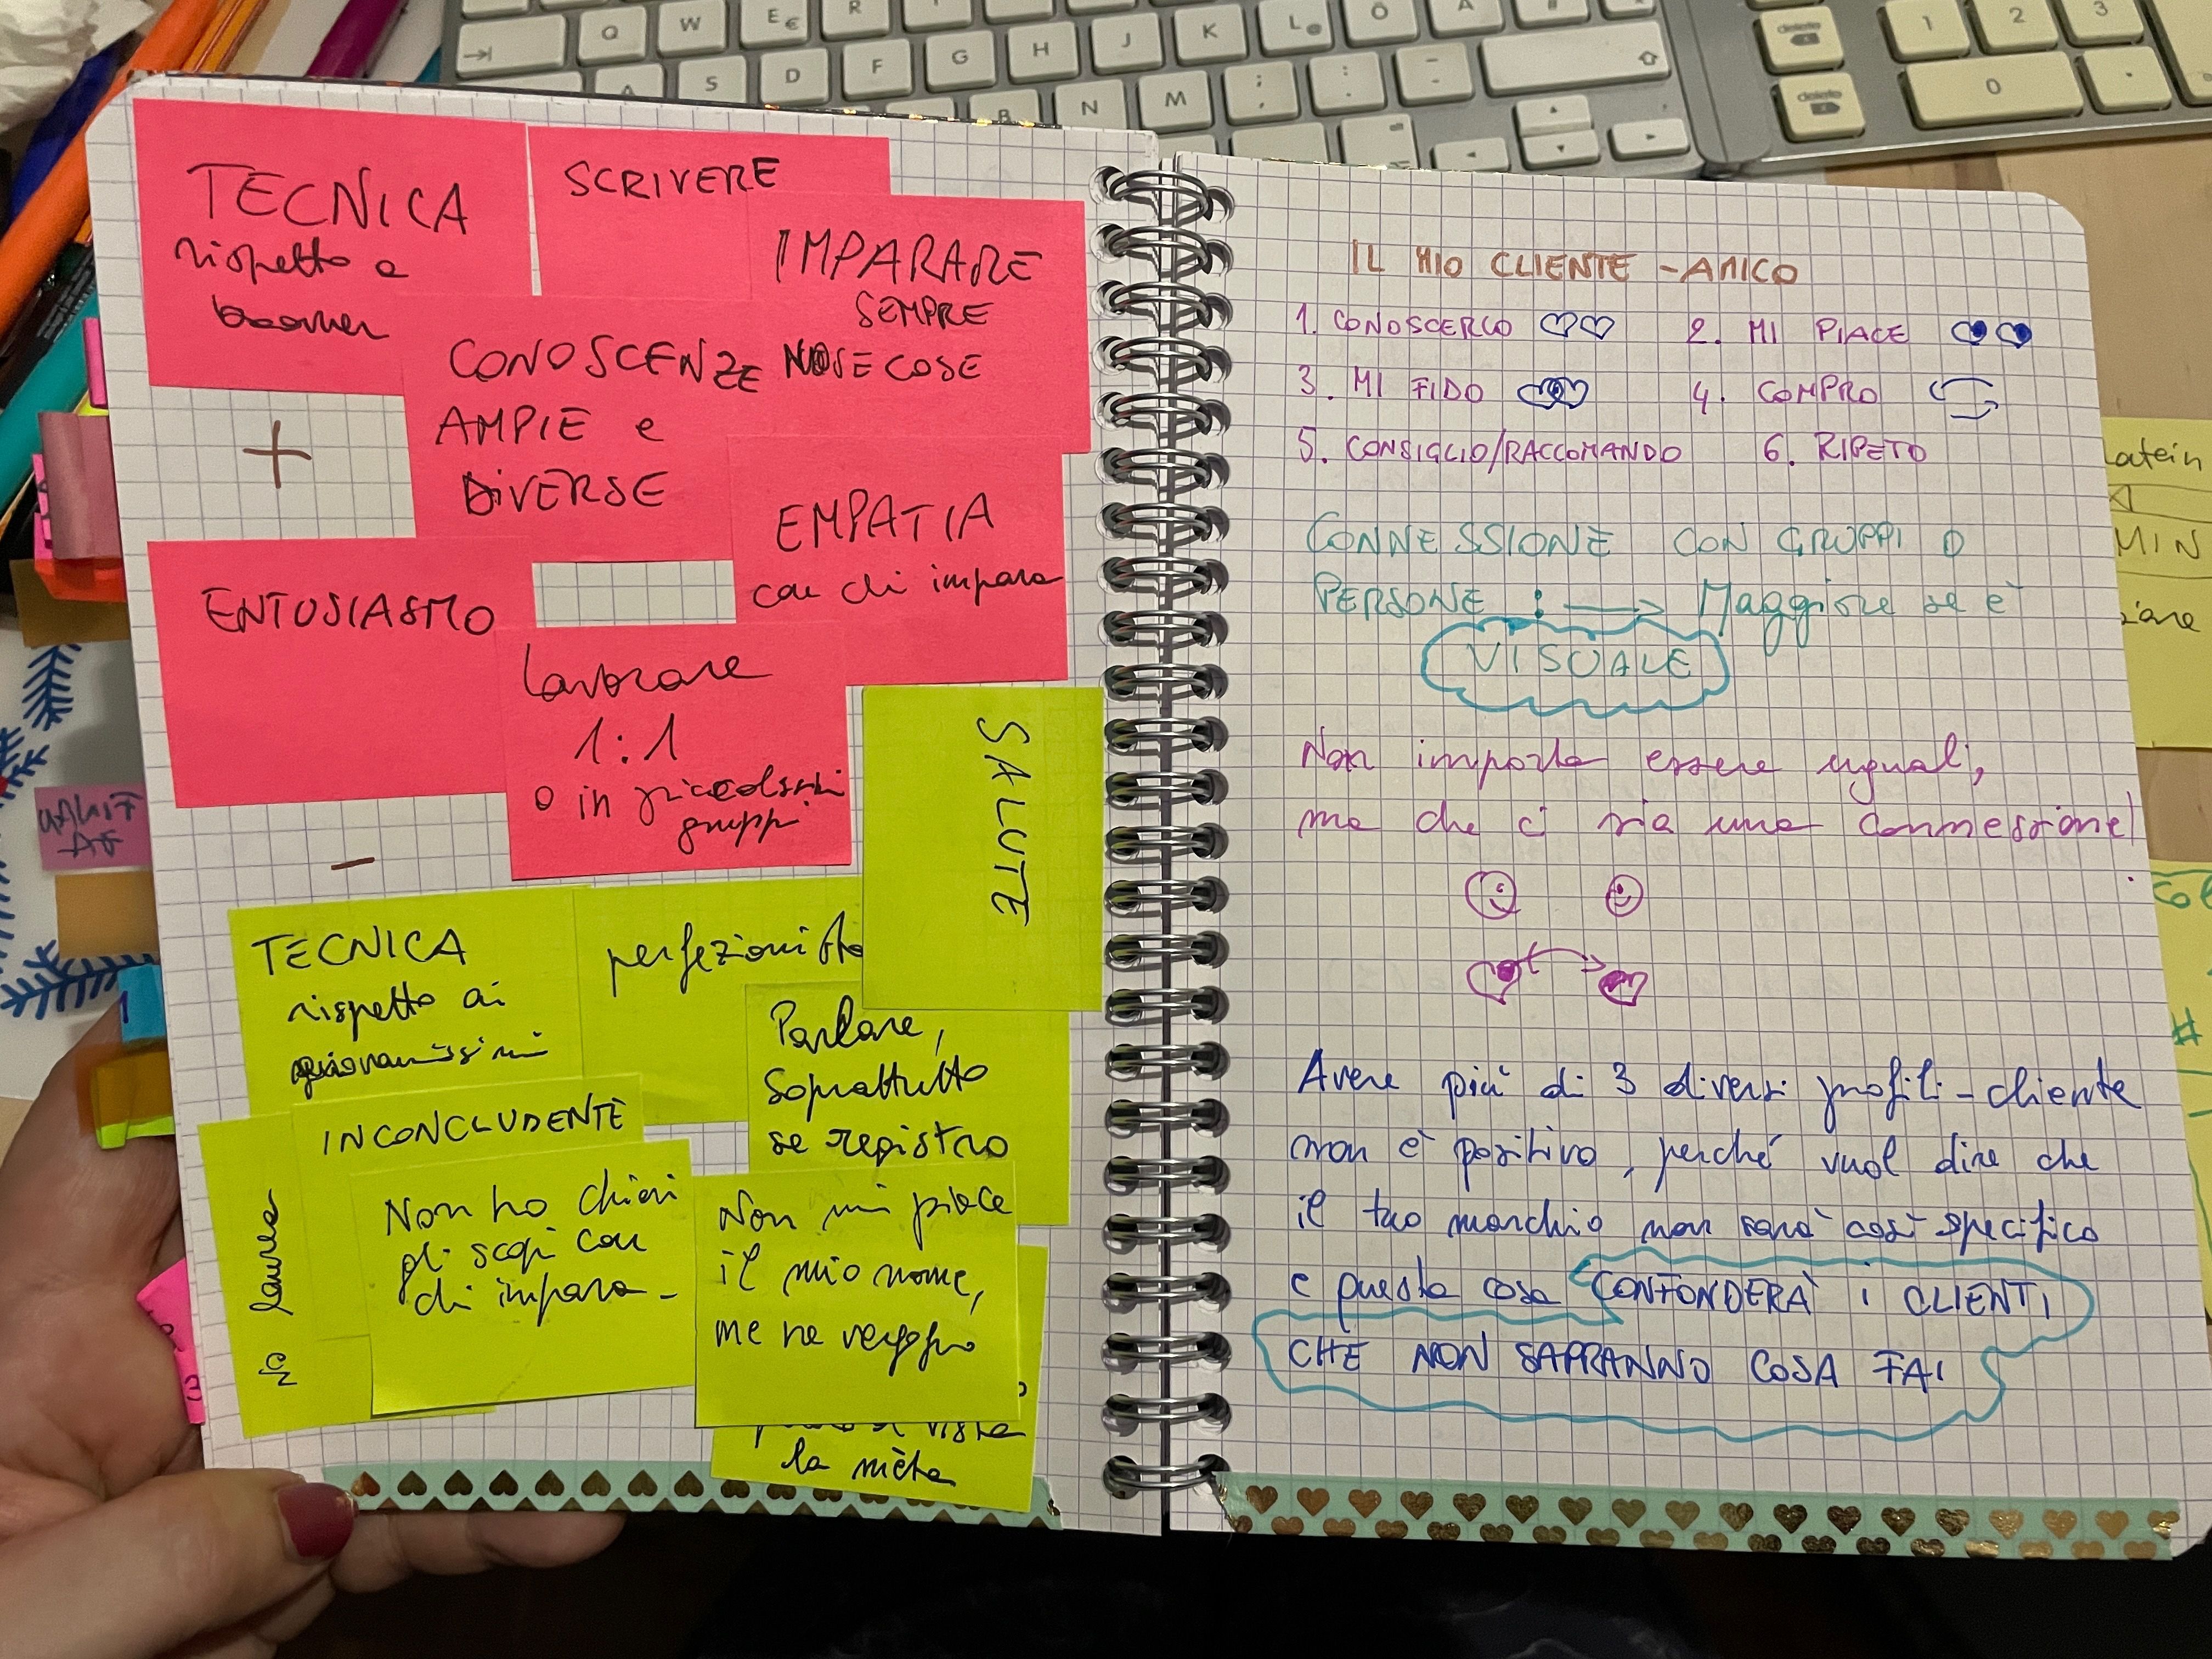 TECNICA
rispetto a
boomer
SCRIVERE
IMPARARE
SEMPRE
NUOVE COSE
CONOSCENZE
AMPIE e
DIVERSE
+
EMPATIA
con chi impara
ENTUSIASMO
lavorare
1:1
o in piccolissimi
gruppi
SALUTE
-
TECNICA
rispetto ai
giovanissimi
perfezionista
Parlare,
soprattutto
se registro
INCONCLUDENTE
Non ho chiari
gli scopi con
chi impara
Non mi piace
il mio nome,
me ne vergogno
la mèta
IL MIO CLIENTE - AMICO
1. CONOSCERLO 2. MI PIACE
3. MI FIDO 4. COMPRO
5. CONSIGLIO/RACCOMANDO 6. RIPETO
CONNESSIONE CON GRUPPI O
PERSONE : → Maggiore se è
VISUALE
Non importa essere uguali,
ma che ci sia una connessione!
Avere più di 3 diversi profili-cliente
non è positivo, perché vuol dire che
il tuo marchio non sarà così specifico
e questa cosa CONFONDERÀ i CLIENTI
CHE NON SAPRANNO COSA FAI
Q W E € R
S D F G H J K L Ö Ä
B N M ; , : . -
delete 1 2 3
delete 0
Latein
MIN